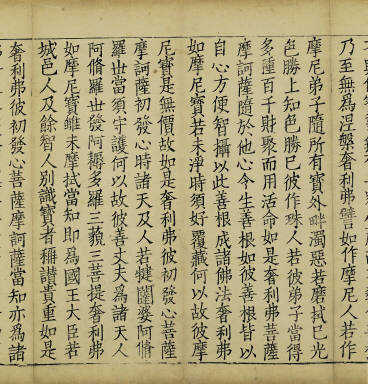 乃至無為涅槃奢利弗譬如作摩尼人若作
摩尼弟子隨所有寶外畔濁惡若磨拭已光
色勝上知色勝已彼作珠人若彼弟子當得
多種百千財聚而用活命如是奢利弗菩薩
摩訶薩隨於他心令生善根如彼善根皆以
自心方便智攝以此善根成諸佛法奢利弗
如摩尼寶若未淨時須好覆藏何以故彼摩
尼寶是無價故如是奢利弗彼初發心菩薩
摩訶薩初發心時諸天及人若揵闥婆阿脩
羅世當須守護何以故彼善丈夫為諸天人
阿脩羅世發阿耨多羅三藐三菩提奢利弗
如摩尼寶雖未摩拭當知即為國王大臣若
城邑人及餘智人別識寶者稱讚貴重如是
奢利弗彼初發心菩薩摩訶薩當知亦為諸